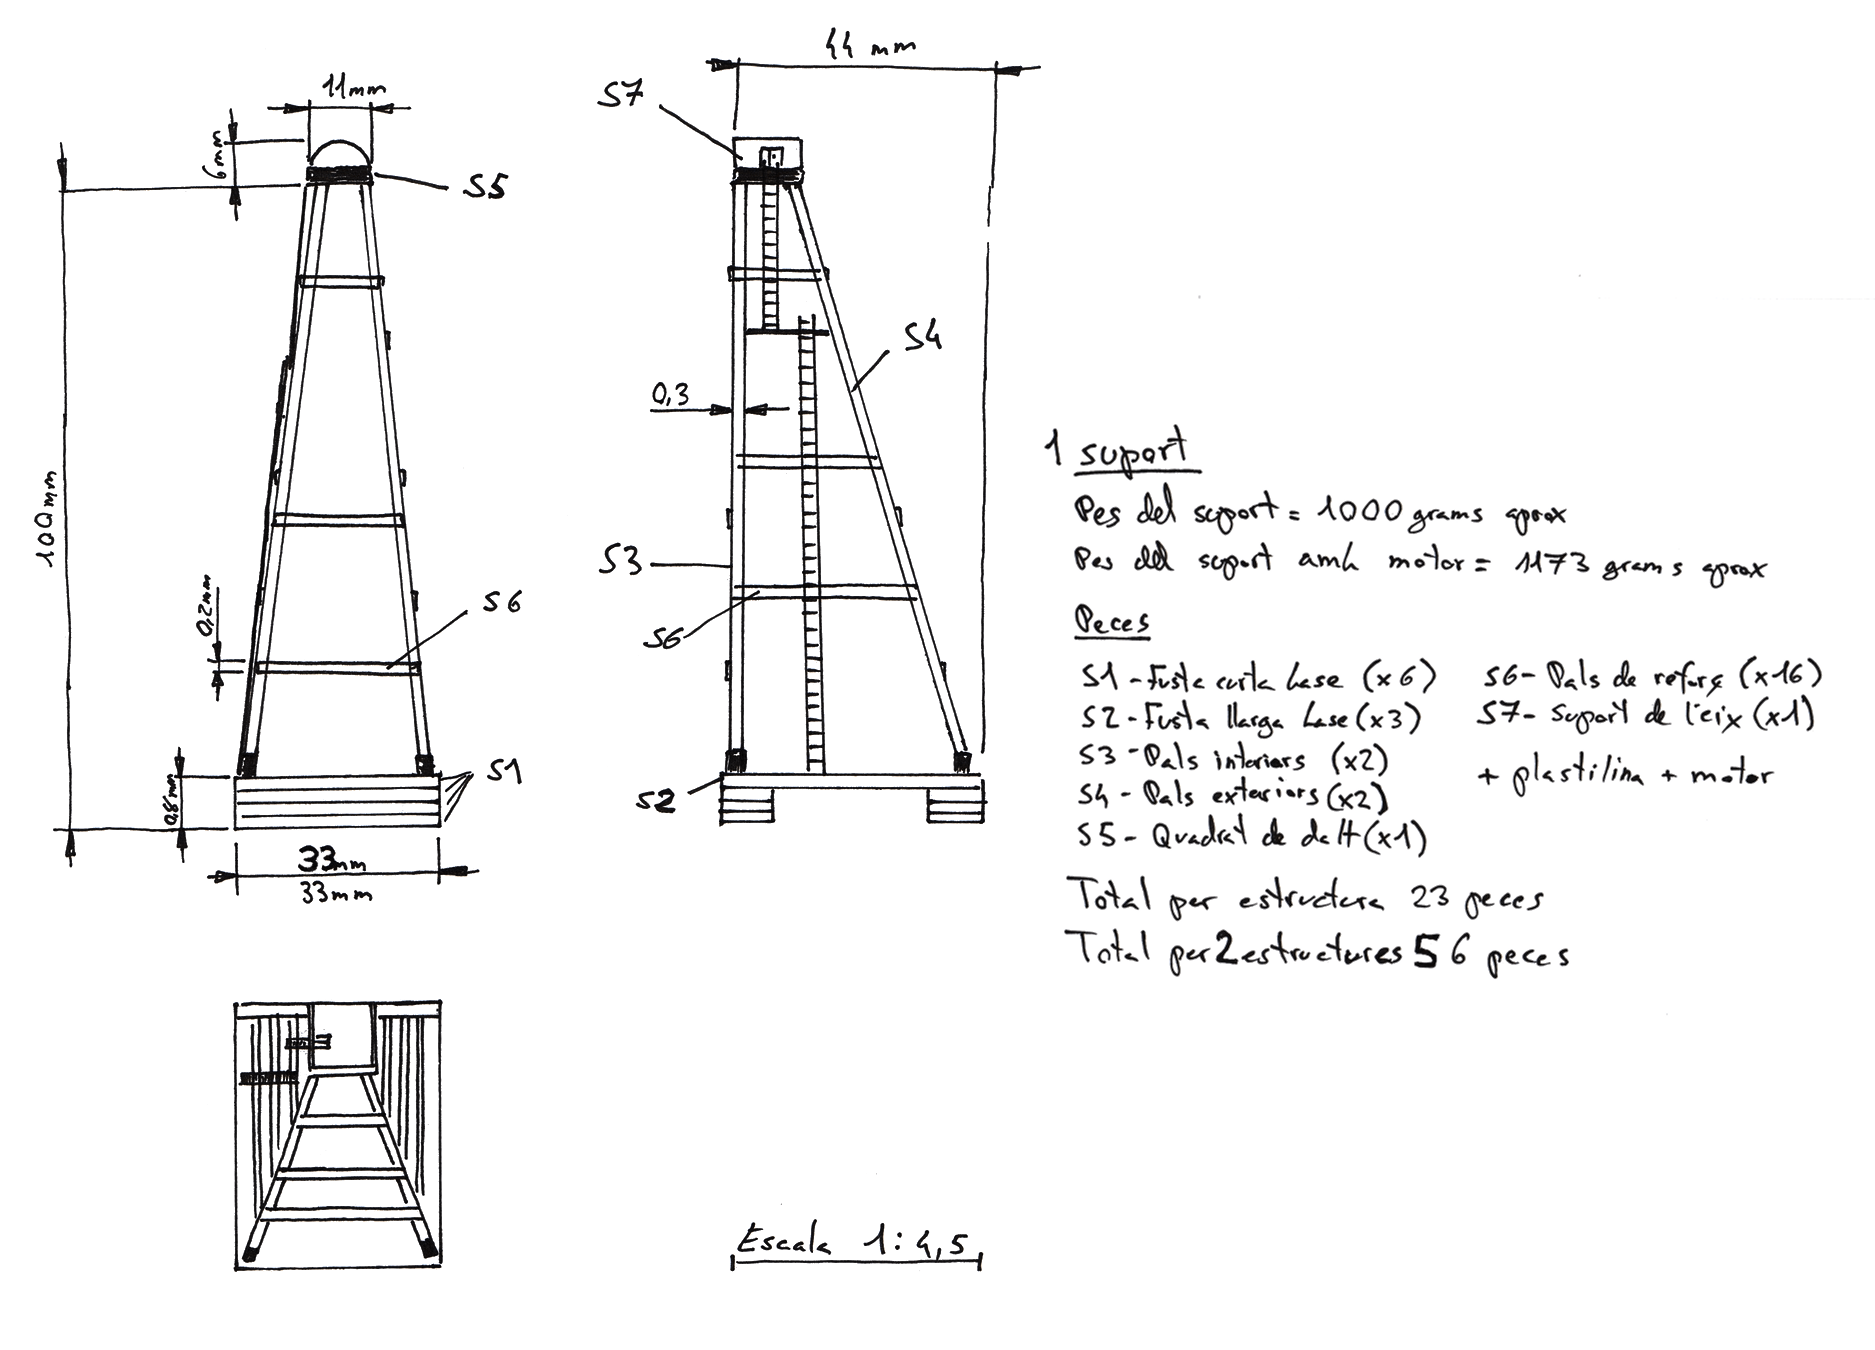 44 mm
11mm
S7
6mm
S5
S4
0,3
100mm
S3
0,2mm
S6
S6
S1
0,8mm
S2
33mm
33mm
1 suport
Pes del soport = 1000 grams aprox
Pes del soport amb motor = 1173 grams aprox
Peces
S1 - Fusta curta base (x6)
S2 - Fusta llarga base (x3)
S3 - Pals interiors (x2)
S4 - Pals exteriors (x2)
S5 - Quadrat de dalt (x1)
S6 - Pals de reforç (x16)
S7 - Soport de l'eix (x1)
+ plastilina + motor
Total per estructura 23 peces
Total per 2 estructures 56 peces
Escala 1:4,5